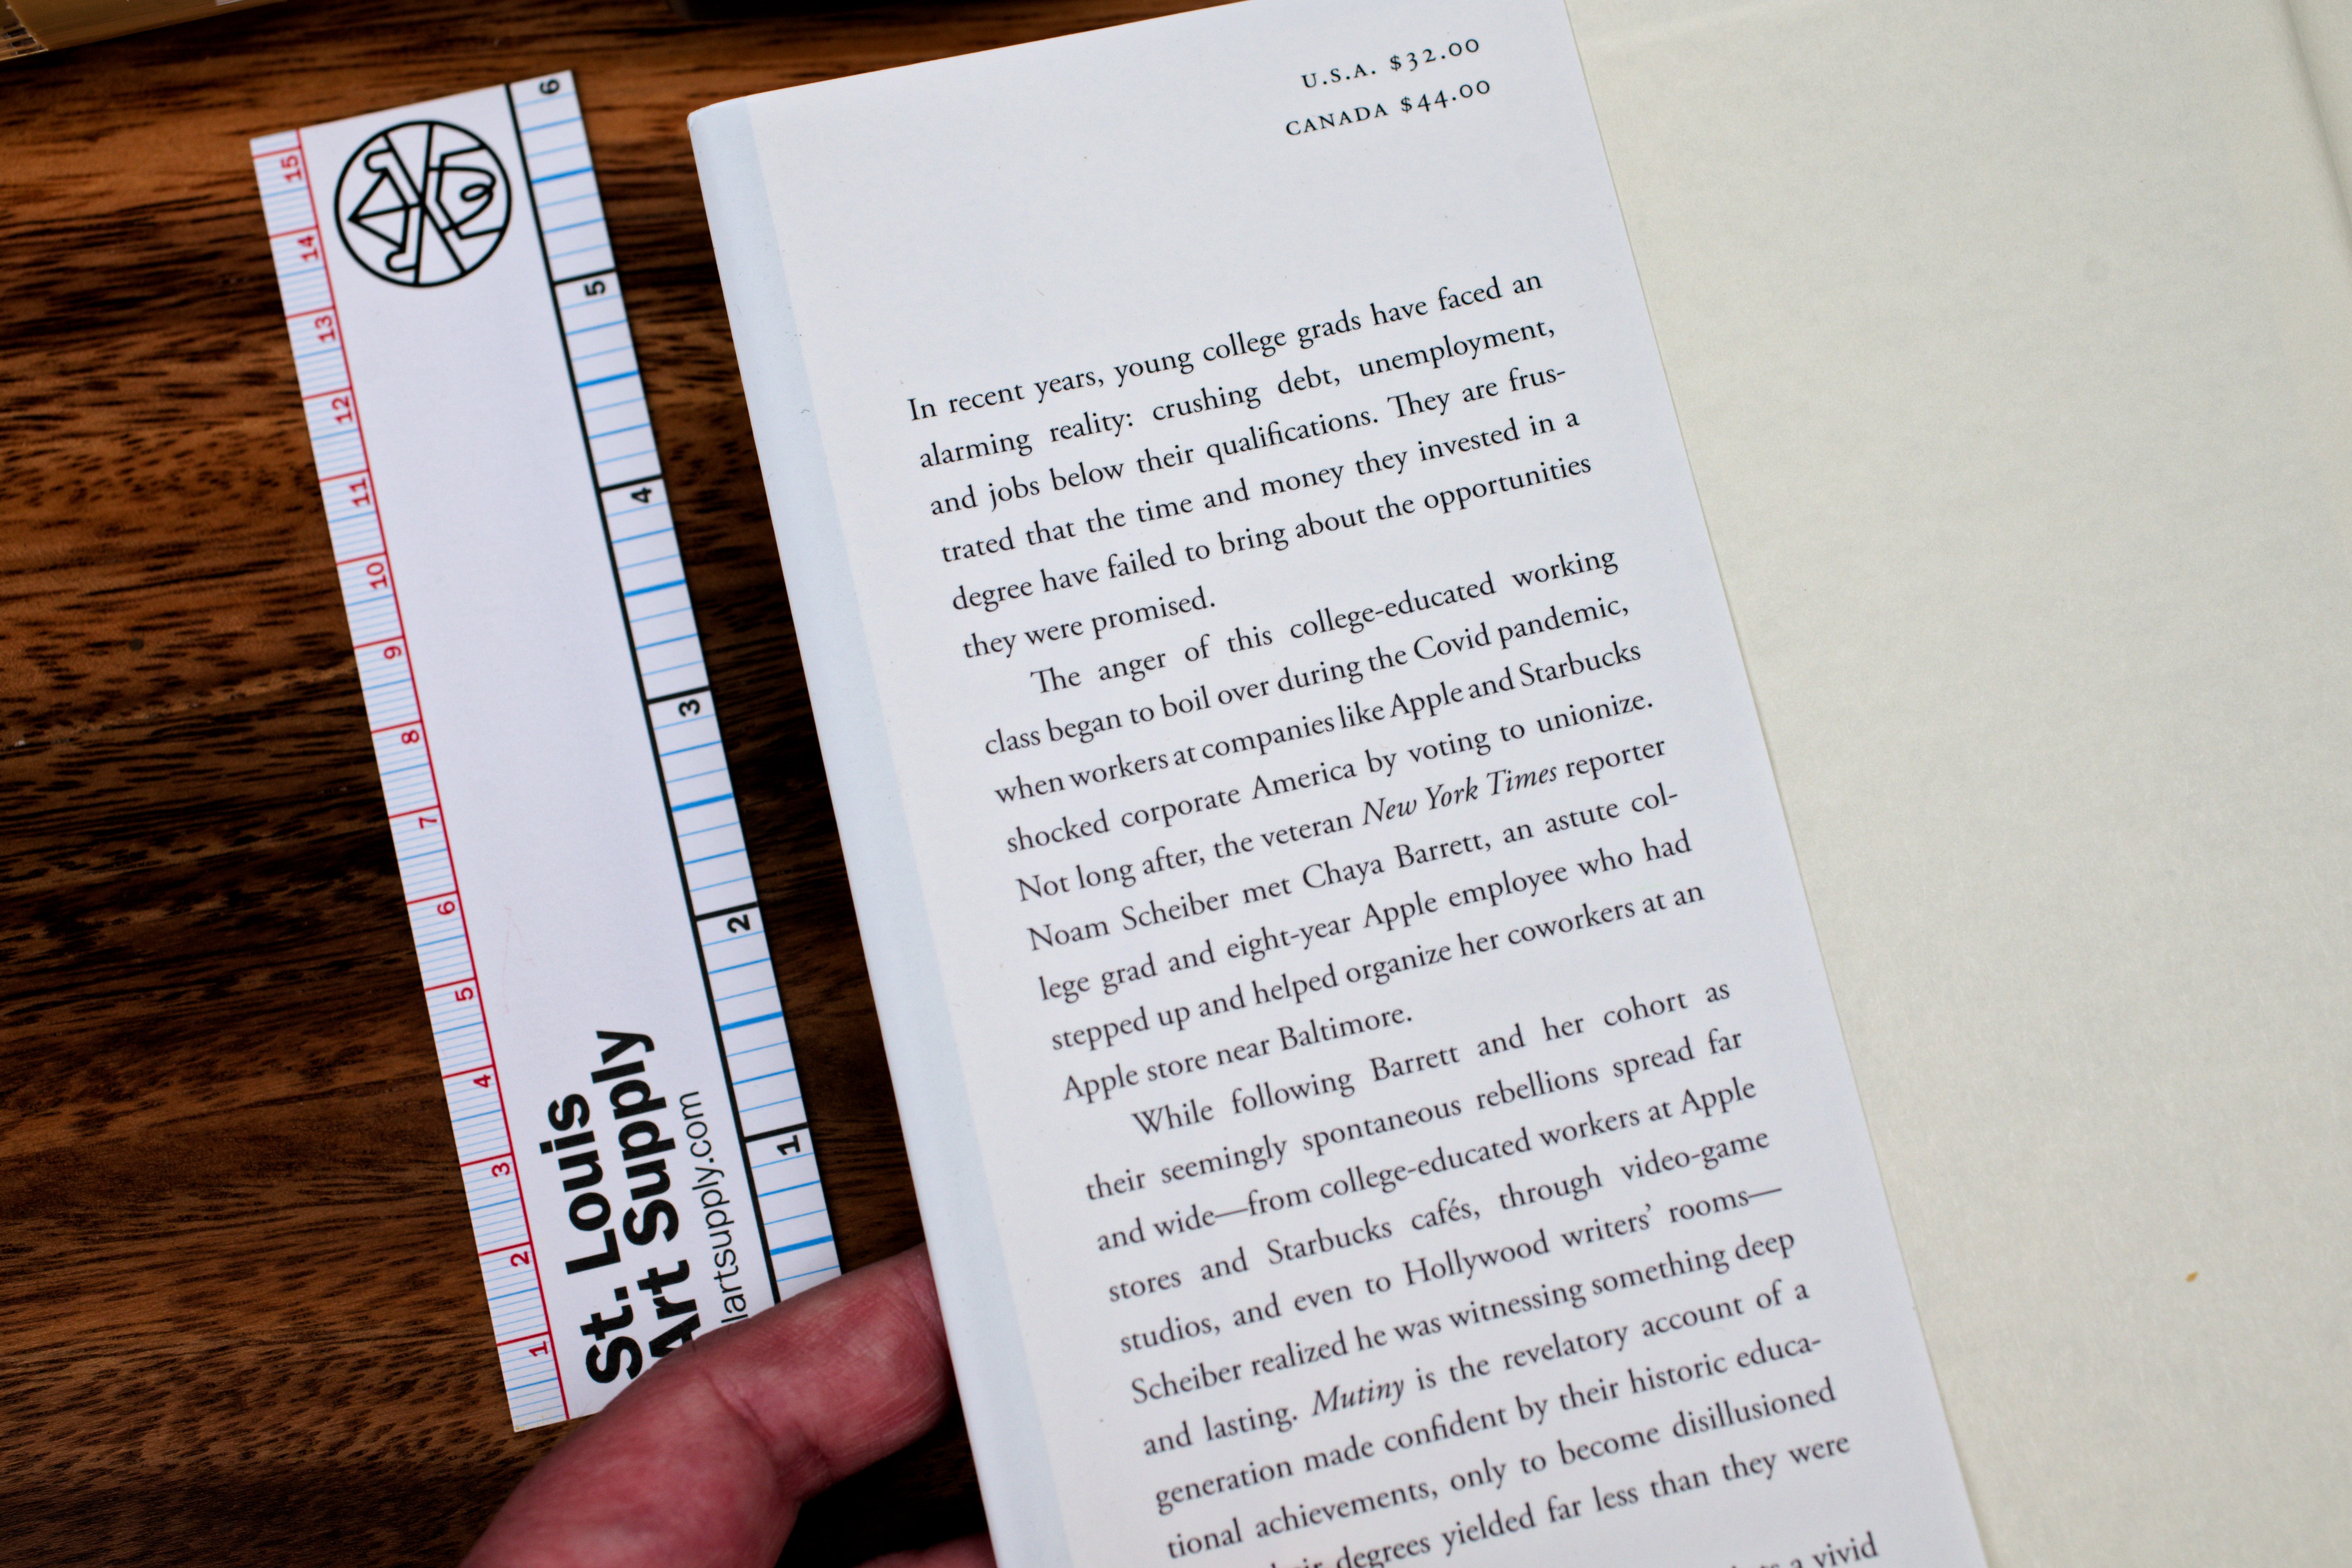 U.S.A. $32.00
CANADA $44.00
In recent years, young college grads have faced an
alarming reality: crushing debt, unemployment,
and jobs below their qualifications. They are frus-
trated that the time and money they invested in a
degree have failed to bring about the opportunities
they were promised.
The anger of this college-educated working
class began to boil over during the Covid pandemic,
when workers at companies like Apple and Starbucks
shocked corporate America by voting to unionize.
Not long after, the veteran New York Times reporter
Noam Scheiber met Chaya Barrett, an astute col-
lege grad and eight-year Apple employee who had
stepped up and helped organize her coworkers at an
Apple store near Baltimore.
While following Barrett and her cohort as
their seemingly spontaneous rebellions spread far
and wide—from college-educated workers at Apple
stores and Starbucks cafés, through video-game
studios, and even to Hollywood writers' rooms—
Scheiber realized he was witnessing something deep
and lasting. Mutiny is the revelatory account of a
generation made confident by their historic educa-
tional achievements, only to become disillusioned
degrees yielded far less than they were
a vivid
St. Louis
Art Supply
lartsupply.com
1
2
3
4
5
6
7
8
9
10
11
12
13
14
15
1
2
3
4
5
6